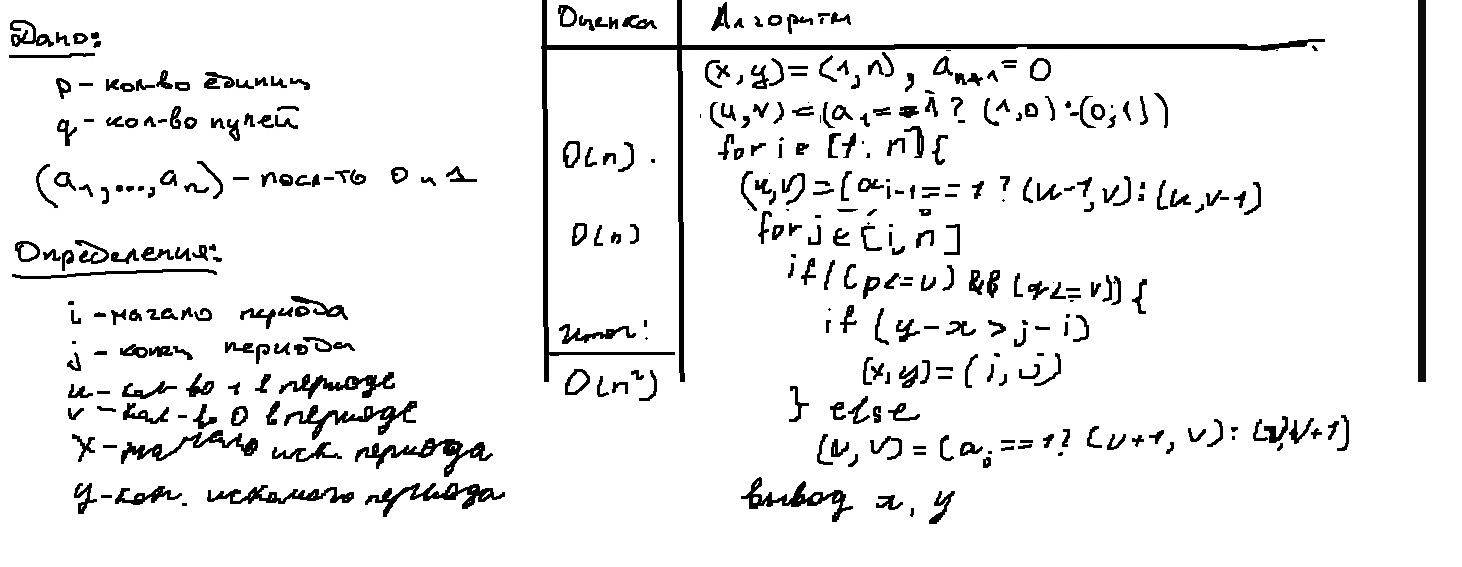 Дано:
p - кол-во единиц
q - кол-во нулей
(a₁,...,aₙ) - посл-ть 0 и 1
Определения:
i - начало периода
j - конец периода
u - кол-во 1 в периоде
v - кол-во 0 в периоде
x - начало иск. периода
y - кон. искомого периода
Оценка
O(n).
O(n)
Итог:
O(n²)
Алгоритм
(x,y)=(1,n), aₙ₊₁=0
(u,v)=(a₁==1? (1,0):(0;1))
for i ∈ [1, n]{
(u,v)=(aᵢ₋₁==1? (u-1,v):(u,v-1)
for j ∈ [i, n]
if((p<=u) && (q<=v)){
if (y-x>j-i)
(x,y)=(i,j)
} else
(u,v)=(aⱼ==1? (u+1,v):(u,v+1)
вывод x, y